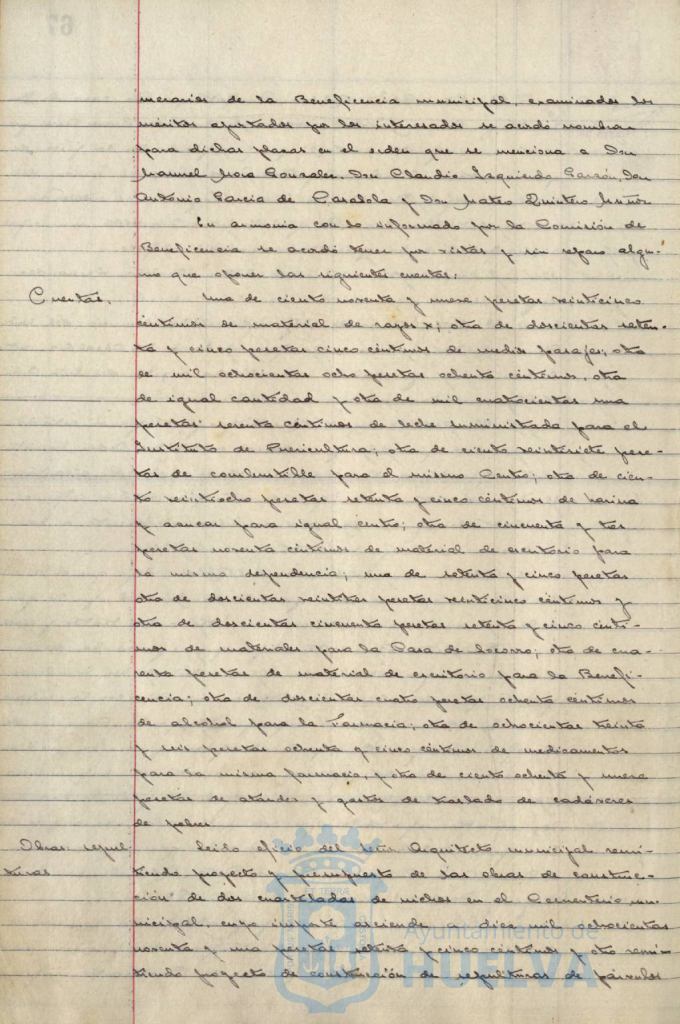 merarios de la Beneficencia municipal, examinados los
méritos aportados por los interesados se acordó nombrar
para dichas plazas en el orden que se menciona a Don
Manuel Mora Gonzalez, Don Claudio Izquierdo Garzón, Don
Antonio Garcia de Casalola y Don Mateo Quintero Muñoz
En armonia con lo informado por la Comisión de
Beneficencia se acordó tener por vistas y sin reparo algu-
no que oponer las siguientes cuentas:
Cuentas.
Una de ciento noventa y nueve pesetas veinticinco
céntimos de material de rayos x; otra de doscientas seten-
ta y cinco pesetas cinco céntimos de medios pasajes; otra
de mil ochocientas ocho pesetas ochenta céntimos, otra
de igual cantidad y otra de mil cuatrocientas una
pesetas sesenta céntimos de leche suministrada para el
Instituto de Puericultura; otra de ciento veintisiete pese-
tas de combustible para el mismo Centro; otra de cien-
to veintiocho pesetas setenta y cinco céntimos de harina
y azucar para igual centro; otra de cincuenta y tres
pesetas noventa céntimos de material de escritorio para
la misma dependencia; una de setenta y cinco pesetas
otra de doscientas veintitres pesetas veinticinco céntimos y
otra de doscientas cincuenta pesetas setenta y cinco cénti-
mos de materiales para la Casa de Socorro; otra de cua-
renta pesetas de material de escritorio para la Benefi-
cencia; otra de doscientas cuatro pesetas ochenta céntimos
de alcohol para la Farmacia; otra de ochocientas treinta
y seis pesetas ochenta y cinco céntimos de medicamentos
para la misma farmacia, y otra de ciento ochenta y nueve
pesetas de ataudes y gastos de traslado de cadáveres
de pobres
Obras. sepul-
turas
Leido oficio del Señor Arquitecto municipal remi-
tiendo proyecto y presupuesto de las obras de construc-
ción de dos cuarteladas de nichos en el Cementerio mu-
nicipal, cuyo importe asciende a diez mil ochocientas
noventa y una pesetas setenta y cinco céntimos y otro remi-
tiendo proyecto de construcción de sepulturas de párvulos
Ayuntamiento de
HUELVA